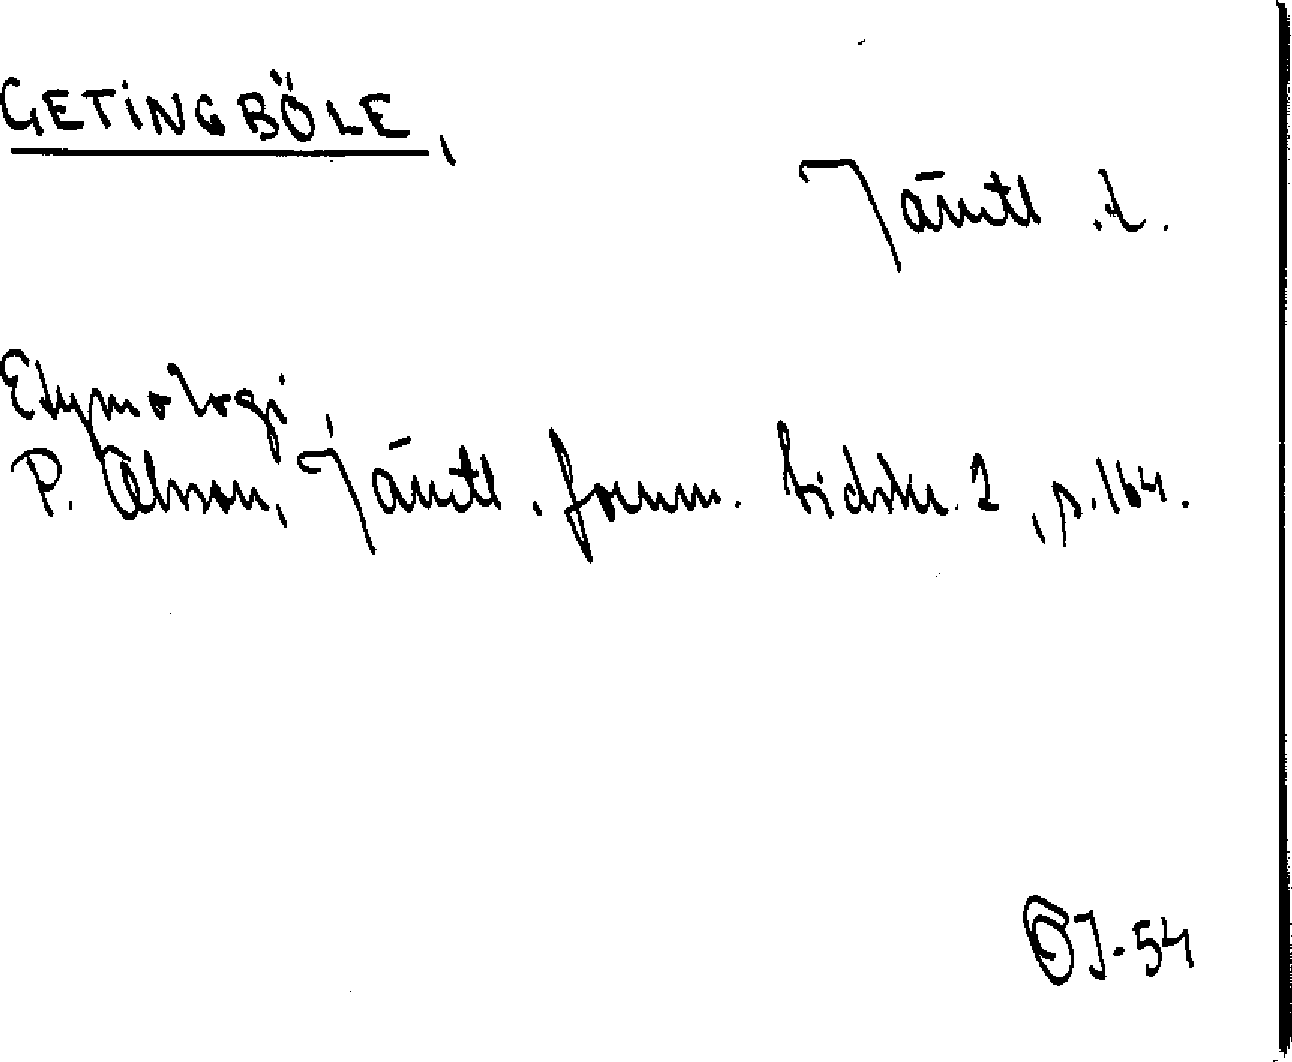 GETINGBÖLE,
Jämtl. l.
Etymologi,
P. Olsson, Jämtl. fornm. tidskr. 2, p. 164.
ÖJ-54